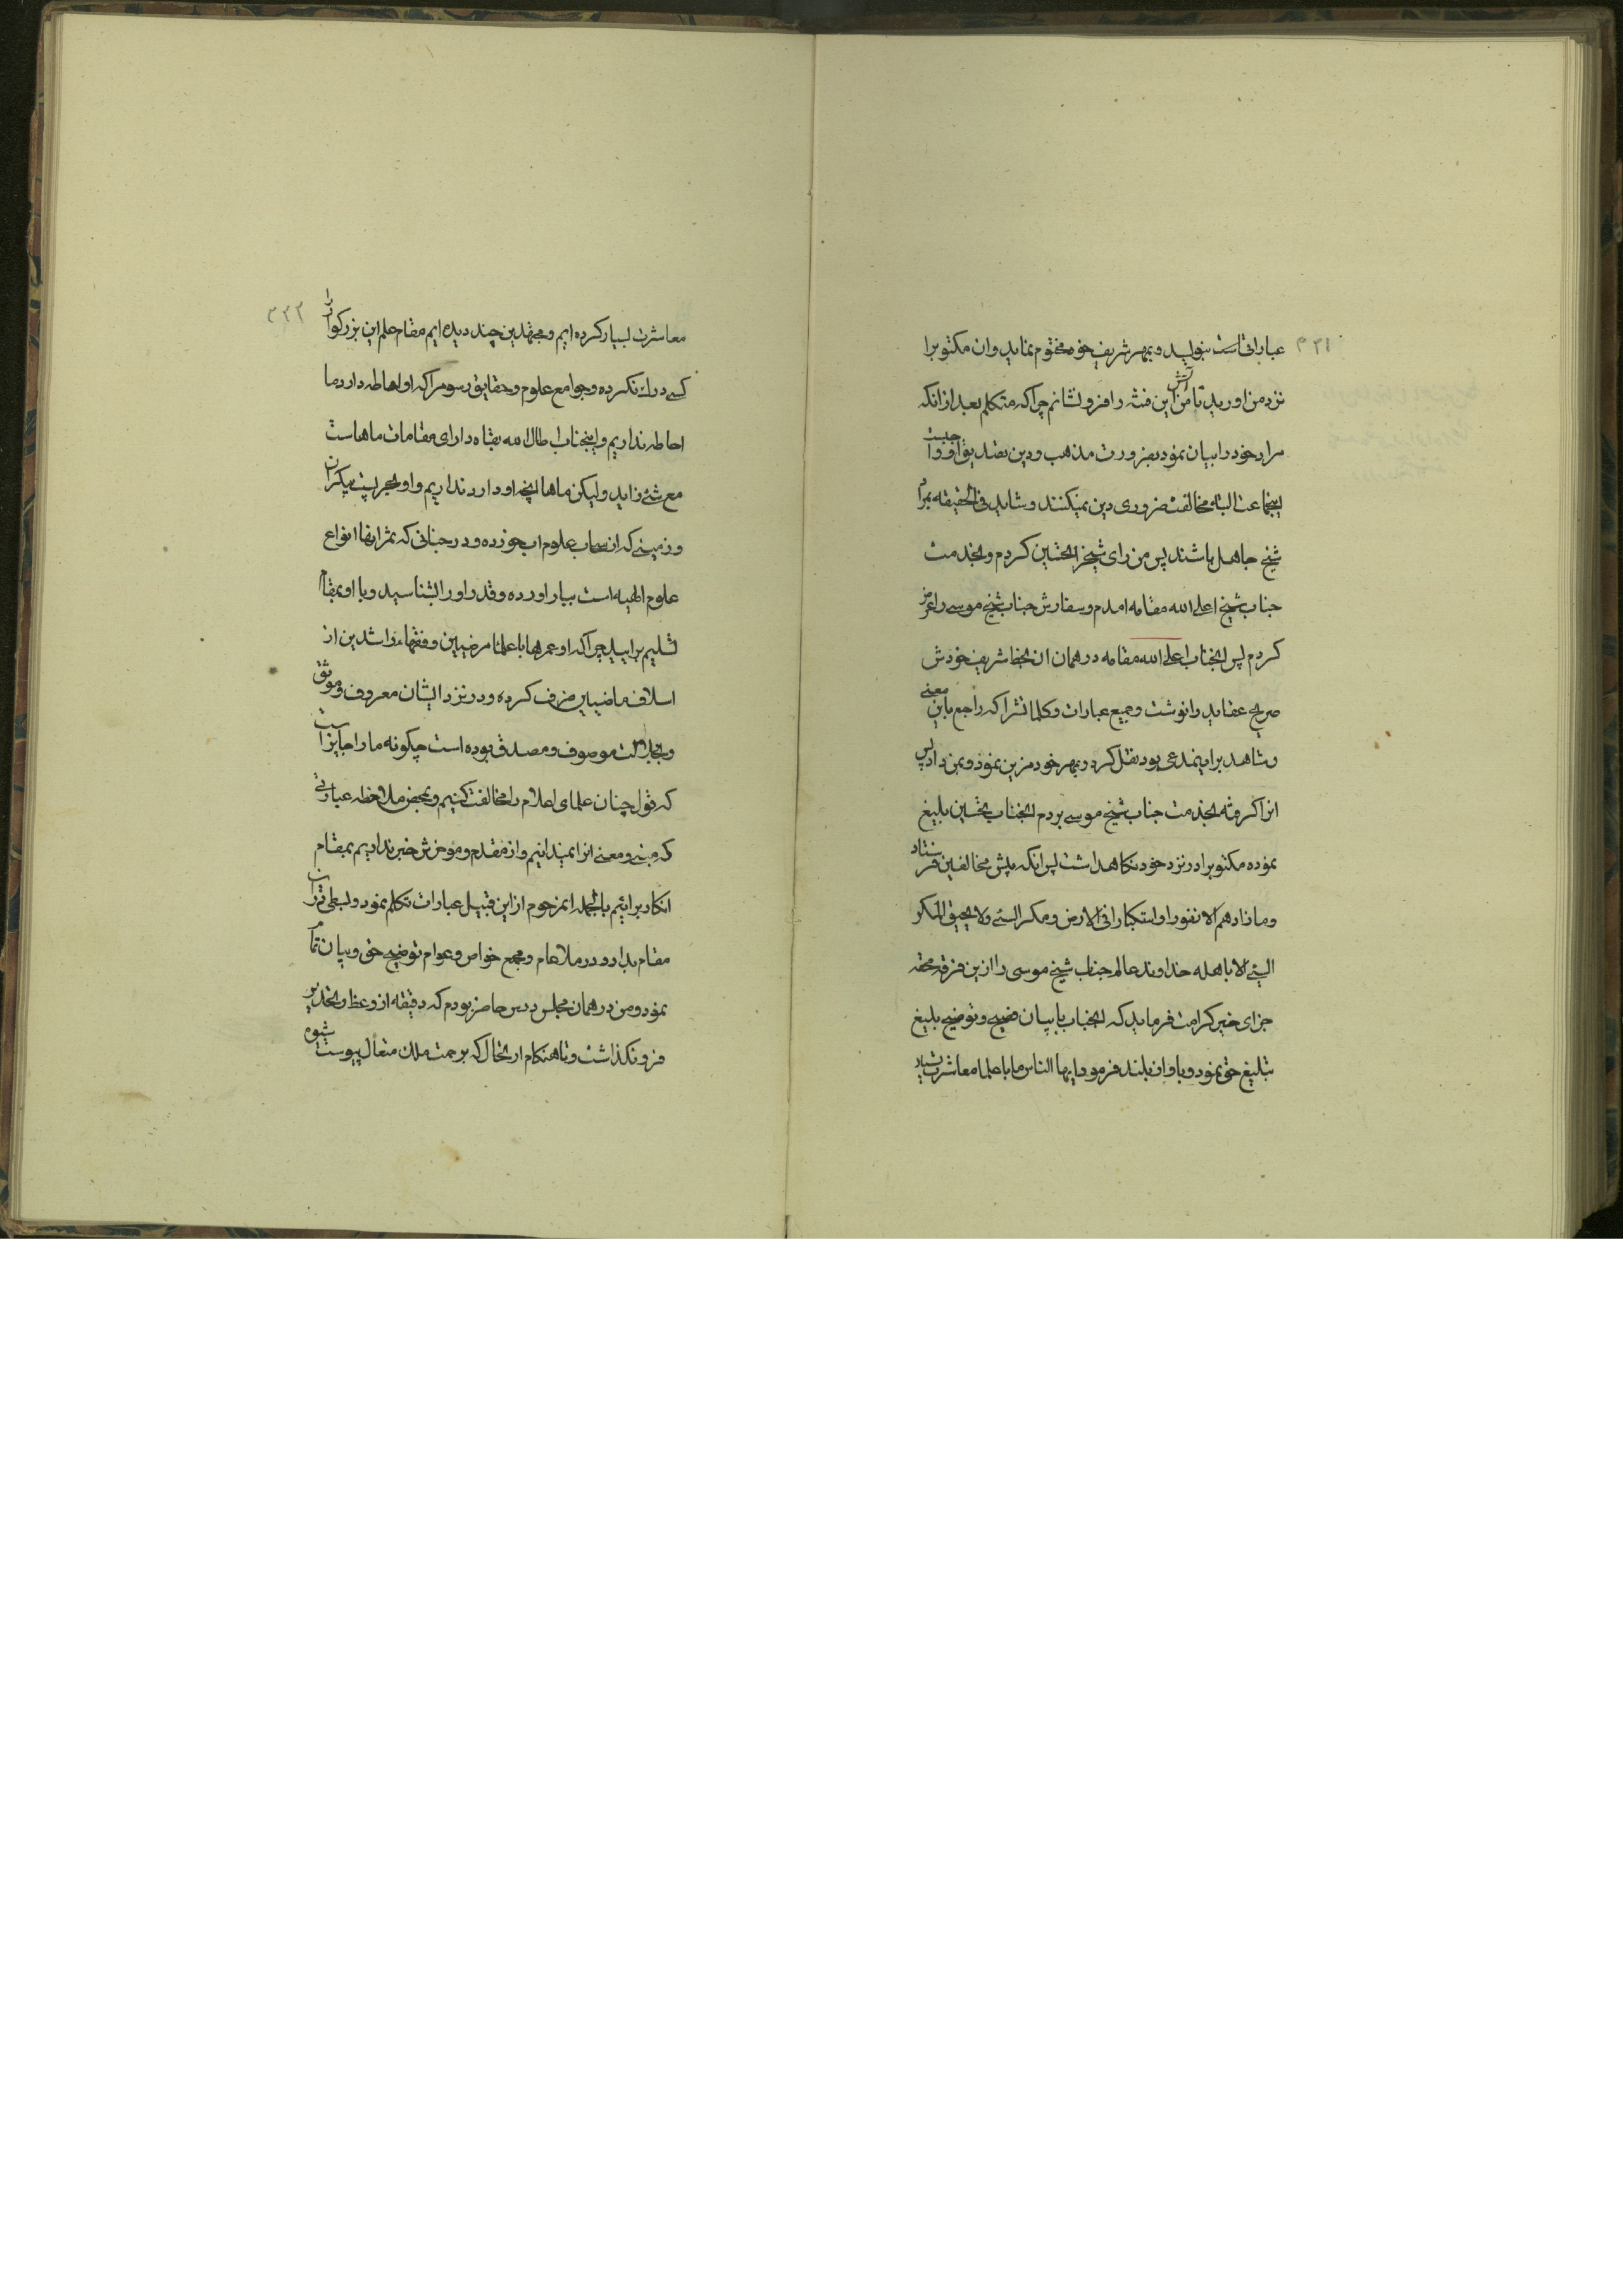 ۳۲۱
عباراتست بنویسد و بمهر شریف خود مختوم نماید و ان مکتوبرا
نزد من اورید تا من آتش این فتنه را فرو نشانم چراکه متکلم بعد از انکه
مراد خود را بیان نمود بضرورت مذهب و دین تصدیق او واجبست
اینجماعت البته مخالفت ضروری دین نمیکنند و شاید فی الحقیقه بمراد
شیخ جاهل باشند پس من رای شیخرا تحسین کردم و بخدمت
جناب شیخ اعلی الله مقامه امدم و سفارش جناب شیخ موسی را عرض
کردم پس انجناب اعلی الله مقامه در همان ان بخط شریف خودش
صریح عقاید را نوشت و جمیع عبارات و کلماتشرا که راجع باین معنی
و شاهد بر اینمدعی بود نقل کرد و بمهر خود مزین نمود و بمن داد پس
انرا گرفته بخدمت جناب شیخ موسی بردم انجناب تحسین بلیغ
نموده مکتوبرا در نزد خود نگاهداشت پس انکه پیش مخالفین فرستاد
و ما زادهم الا نفورا و استکبارا فی الارض و مکر السیئ و لا یحیق المکر
السیئ الا باهله خداوند عالم جناب شیخ موسی را ازین فرقه محقه
جزای خیر کرامت فرماید که انجناب با بیان فصیح و توضیح بلیغ
تبلیغ حق نمود و باواز بلند فرمود ایها الناس ما با علما معاشرت
۳۲۲
معاشرت بسیار کرده ایم و مجتهدین چند دیده ایم مقام علم این بزرگوار را
کسی درك نکرده و جوامع علوم و حقایق رسومرا که او احاطه دارد ما
احاطه نداریم و اینجناب اطال الله بقاه دارای مقامات ماهاست
مع شئ زاید و لیکن ماها انچه او دارد نداریم و او بحریست بیکران
و زمینی که از سحاب علوم اب خورده و درختانی که ثمر انها انواع
علوم الهیه است ببار اورده و قدر او را بشناسید و با او بمقام
تسلیم برایید چراکه او عمرها با علما مرضیین و فقهاء راشدین از
اسلاف ماضیین صرف کرده و در نزد ایشان معروف و موثق
و بجلالت موصوف و مصدق بوده است چگونه ما را جایز است
که قول چنان علمای اعلام را مخالفت کنیم و بمحض ملاحظه عباراتی
که مبنی و معنی انرا نمیدانیم و از مقدم و موخرش خبر نداریم بمقام
انکار برائیم بالجمله انمرحوم از این قبیل عبارات تکلم نمود و بسطی دران
مقام بداد و در ملاء عام و مجمع خواص و عوام توضیح حق و بیان تمام
نمود و من در همان مجلس درس حاضر بودم که دقیقه از وعظ و تحذیر
فرو نگذاشت و تا هنگام ارتحال که برحمت ملك متعال پیوست شیوه